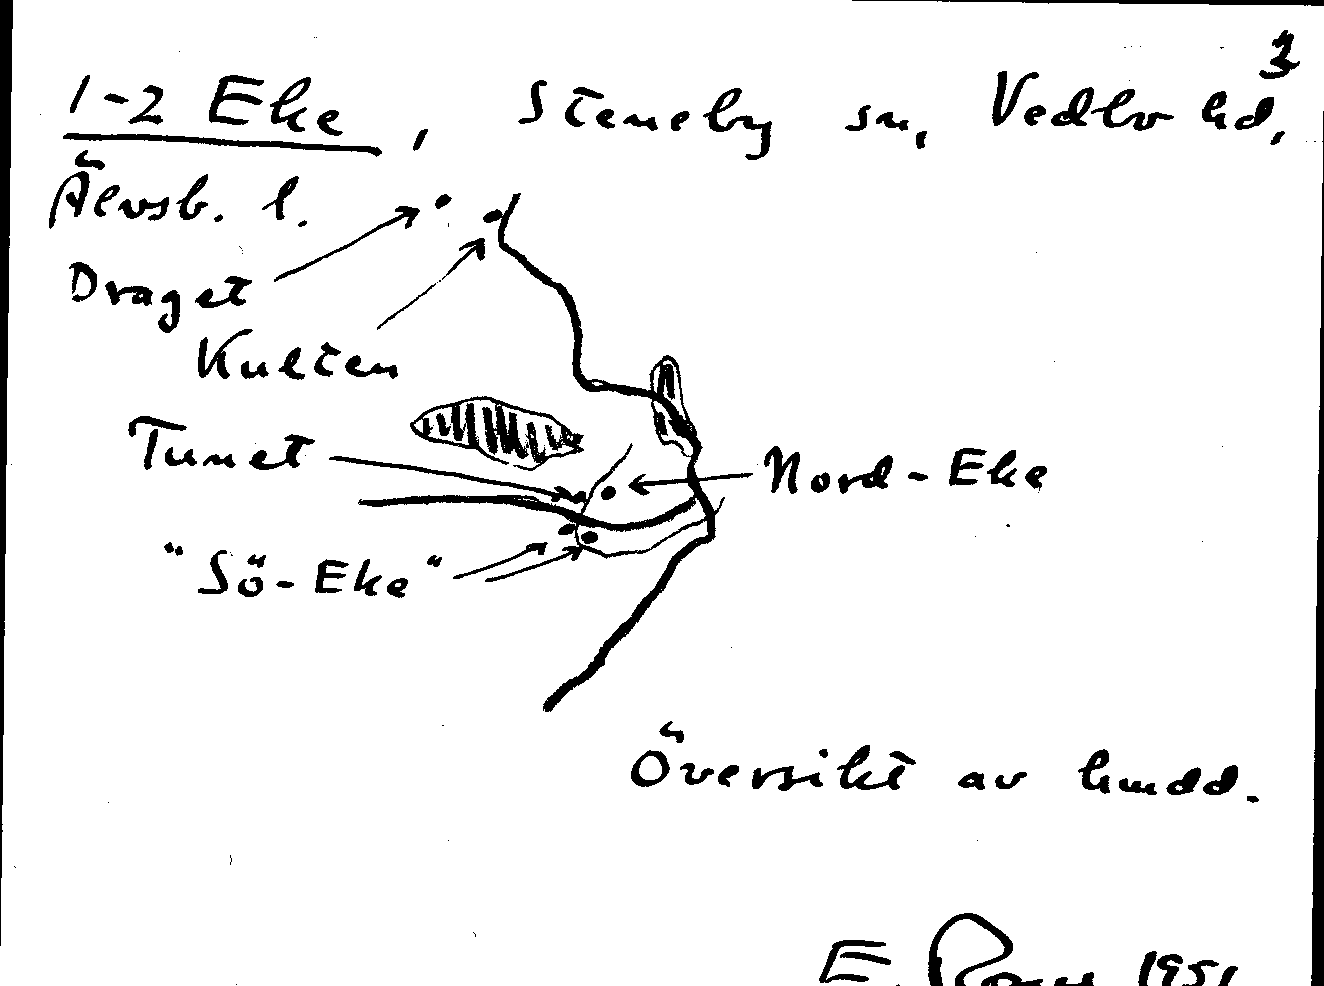 3
1-2 Eke, Steneby sn, Vedbo hd,
Älvsb. l.
Draget
Kulten
Tunet
Nord-Eke
"Sö-Eke"
Översikt av hmdd.
E. 1951